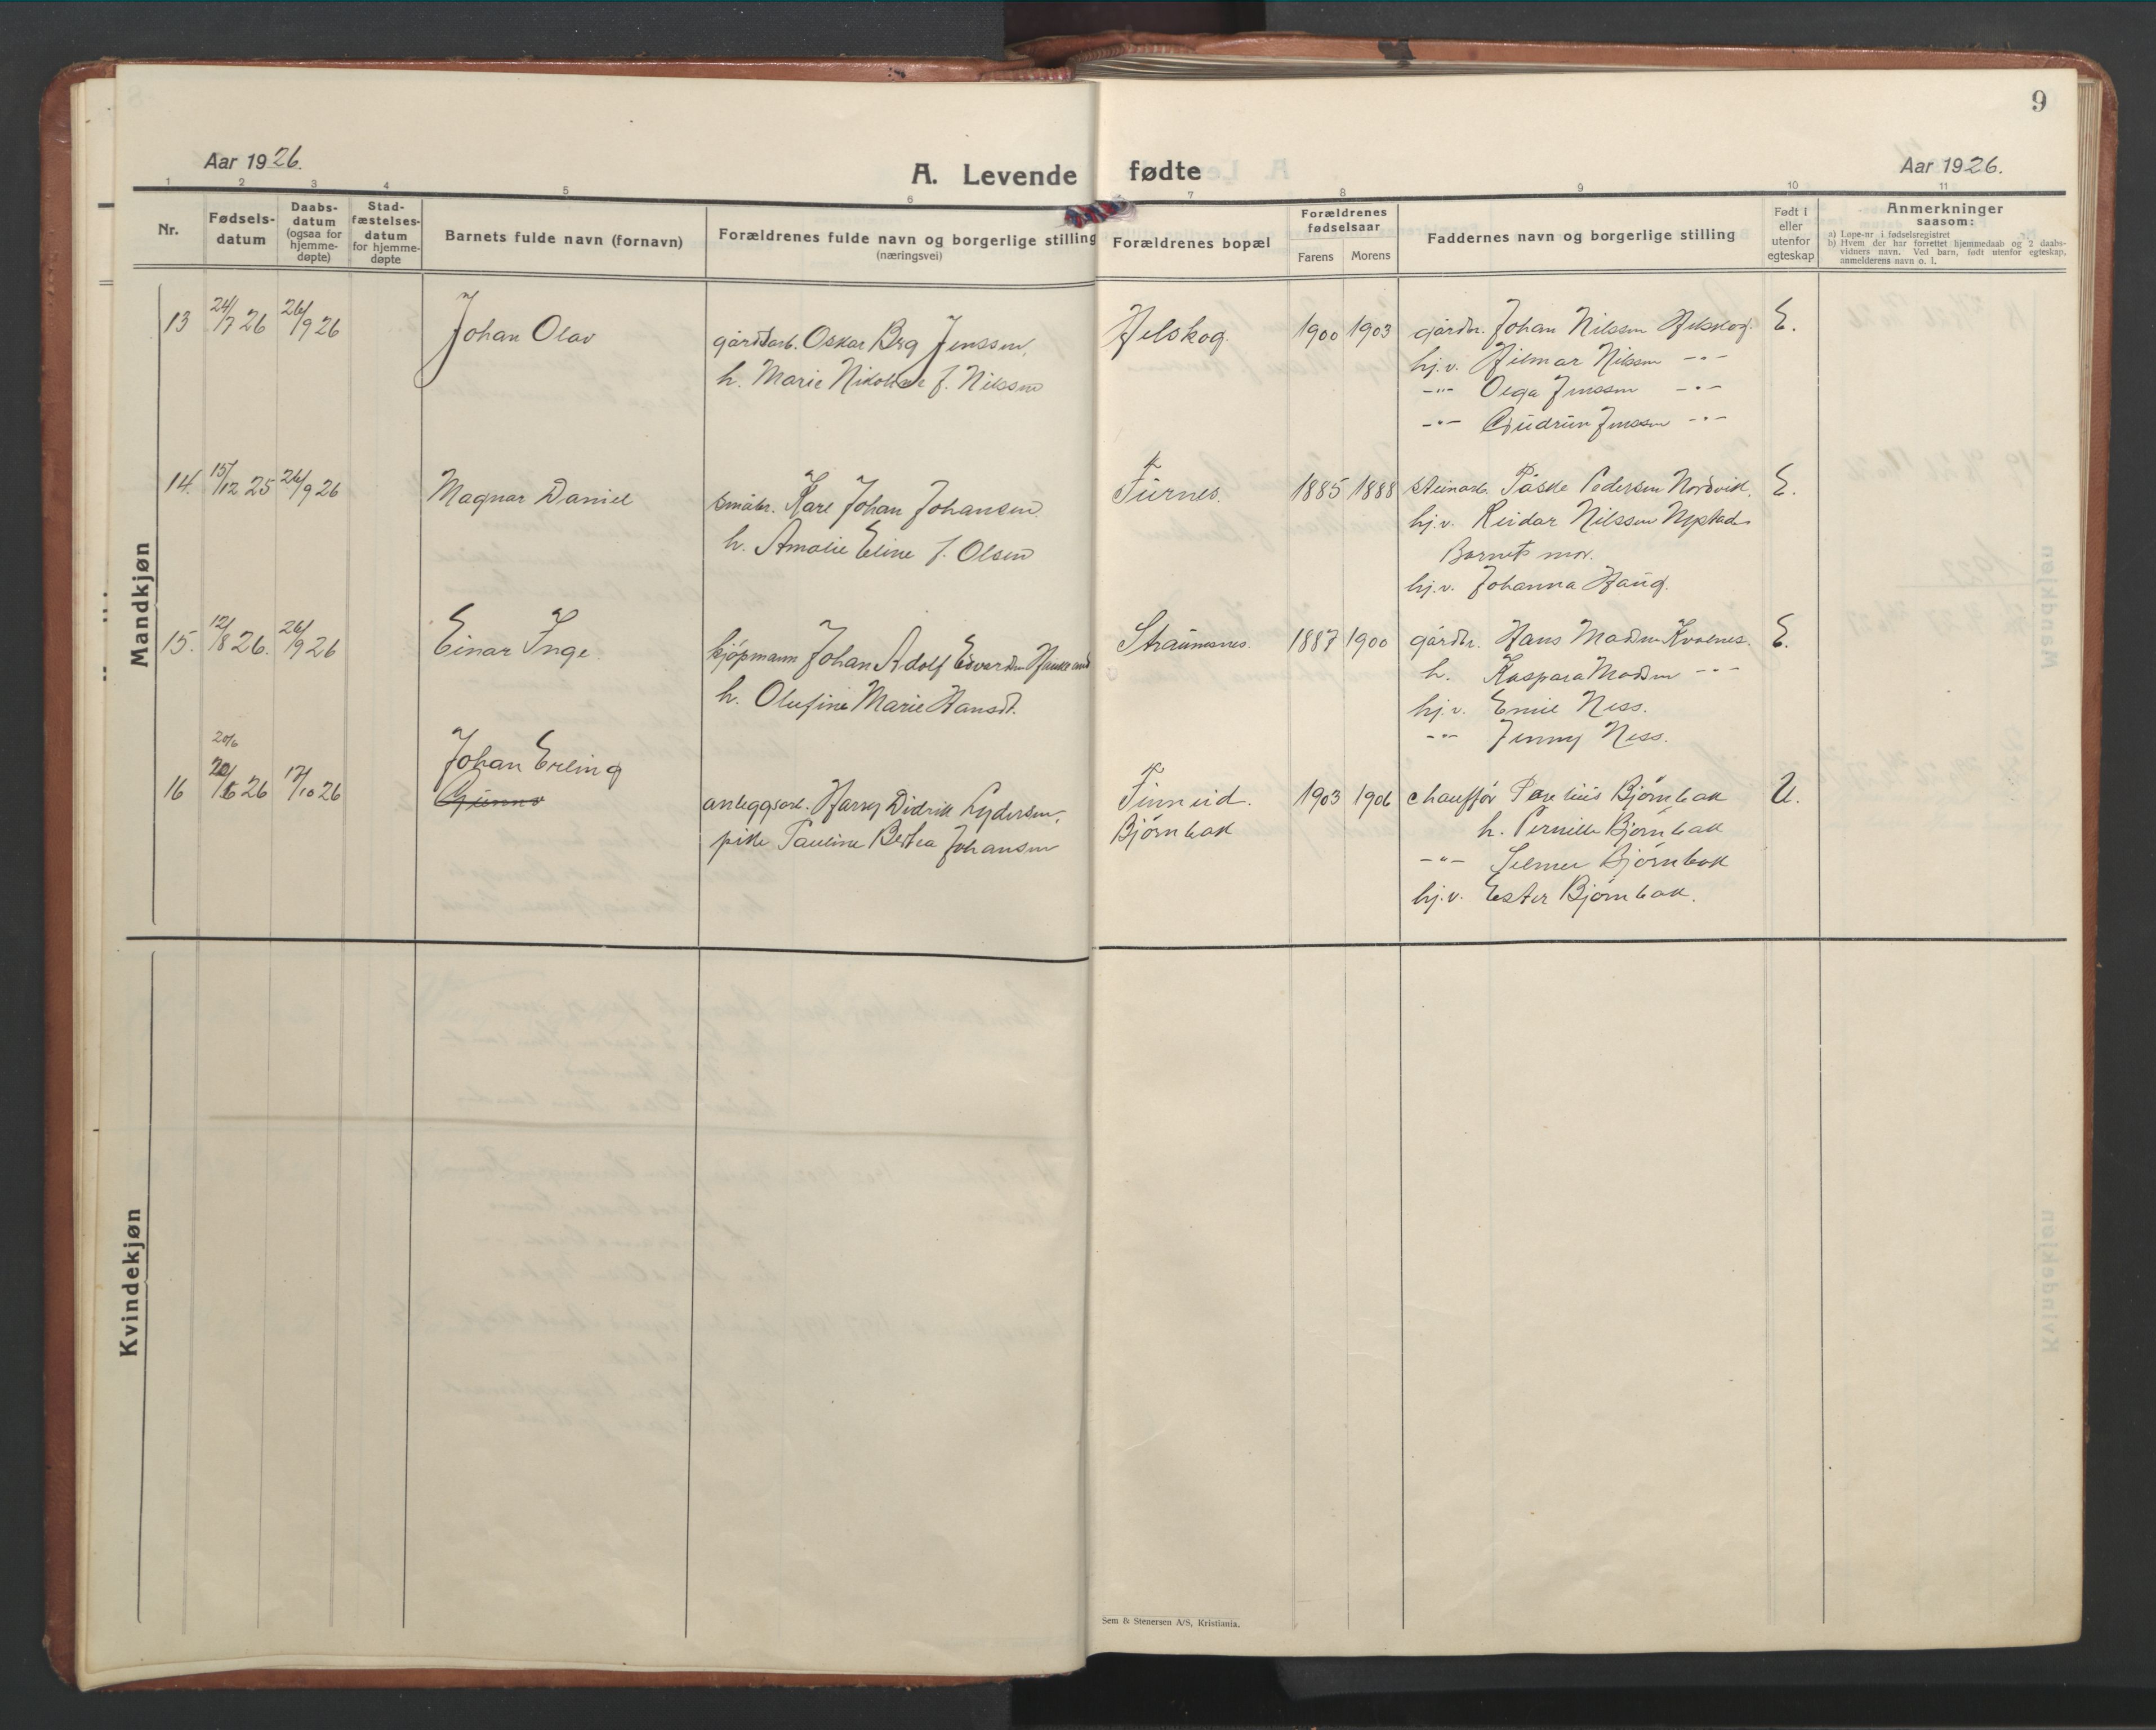 9
Aar 1926.
A. Levende fødte
Aar 1926.
1 2 3 4 5 6 7 8 9 10 11
Nr.
Fødsels-
datum
Daabs-
datum
(ogsaa for
hjemme-
døpte)
Stad-
fæstelses-
datum
for hjemme-
døpte
Barnets fulde navn (fornavn)
Forældrenes fulde navn og borgerlige stilling
(næringsvei)
Forældrenes bopæl
Forældrenes
fødselsaar
Farens Morens
Faddernes navn og borgerlige stilling
Født i
eller
utenfor
egteskap
Anmerkninger
saasom:
a) Løpe-nr i fødselsregistret
b) Hvem der har forrettet hjemmedaab og 2 daabs-
vidners navn. Ved barn, født utenfor egteskap,
anmelderens navn o. l.
Mandkjøn
13 24/7 26 26/9 26 Johan Olav
gårdsarb. Oskar Brg Jenssen,
h. Marie Nikoline f. Nilssen
Helskog. 1900 1903
gårdbr. Johan Nilssen Helskog. E.
hj.v. Hilmar Nilssen -"-
-"- Olga Jenssen -"-
-"- Gudrun Jenssen -"-
14. 15/12 25 26/9 26 Magnar Daniel
småbr. Karl Johan Johansen
h. Amalie Eline f. Olsen
Furnes. 1885 1888
steinarb. Påske Pedersen Nordvik. E.
hj.v. Reidar Nilssen Nystad
Barnets mor.
hj.v. Johanna Haug.
15. 12/8 26. 26/9 26 Einar Inge.
kjøpmann Johan Adolf Edvardsen
h. Olufine Marie Hansdt.
Straumsnes. 1887 1900
gårdbr. Hans Madsen Kvalnes. E.
h. Kaspara Madsen -"-
hj.v. Emil Ness.
-"- Jenny Ness.
20/6
16 20/6 26 17/10 26 Johan Erling
Gunnar
anleggsarb. Harry Didrik Lydersen,
pike Pauline Bertea Johansen
Finneid.
Bjørnbak
1903 1906
chauffør Parelius Bjørnbak U.
h. Pernille Bjørnbak
-"- Selmer Bjørnbak
hj.v. Ester Bjørnbak.
Kvindekjøn
Sem & Stenersen A/S, Kristiania.